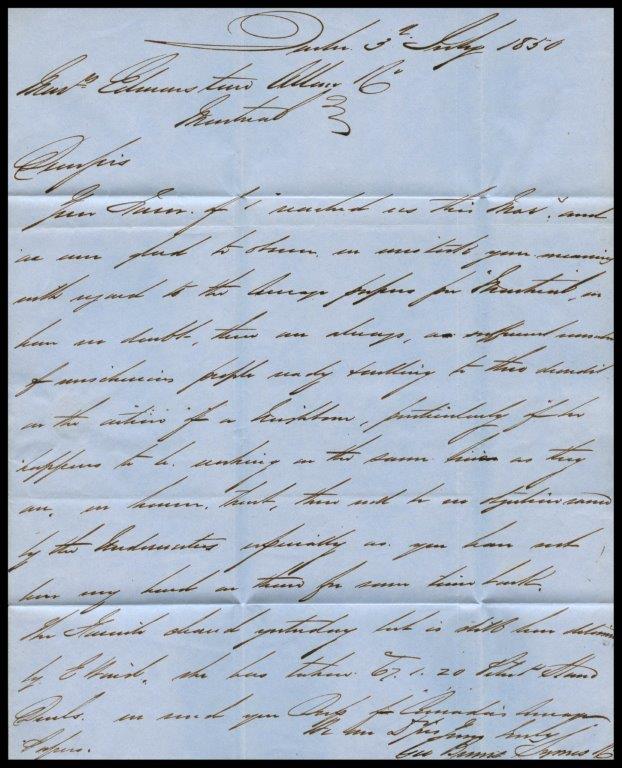 3rd July 1850
Messrs Edmonstone Allan & Co
Montreal
Dear Sirs
Your Favor of 1st reached us this Mor'g. and
we are glad to observe we mistook your meaning
with regard to the Average papers for "Montreal", we
have no doubt, there are always, a sufficient number
of mischievous people ready & willing to throw
on the actions of a Neighbour, particularly if he
happens to be working on the same line as they
are, we however trust, there will be no objections raised
by the Underwriters especially as you have not
been very hard on them for some time back.
The cleared yesterday but is still here detained
by E Wind, she has taken 67.1.20 Stand
Deals. we send you Copy of "Canada's" Average
Papers.
We are D Sirs
Yours truly
Geo Burns Symes & Co